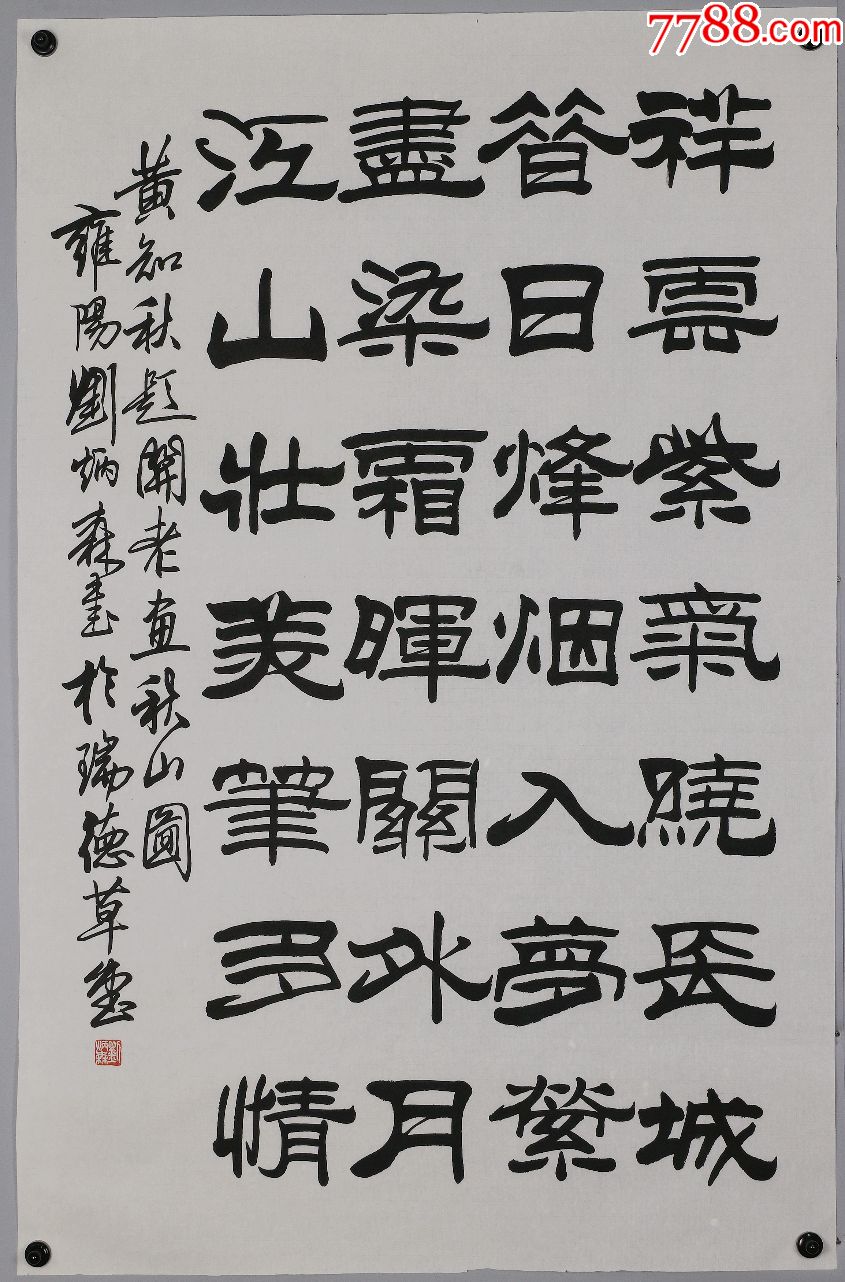 7788.com
祥雲紫氣遶長城
昔日烽烟入夢縈
盡染霜暉關外月
江山壯美筆多情
黄知秋題關老画秋山圖
雍陽劉炳森書於瑞德草堂
劉炳森